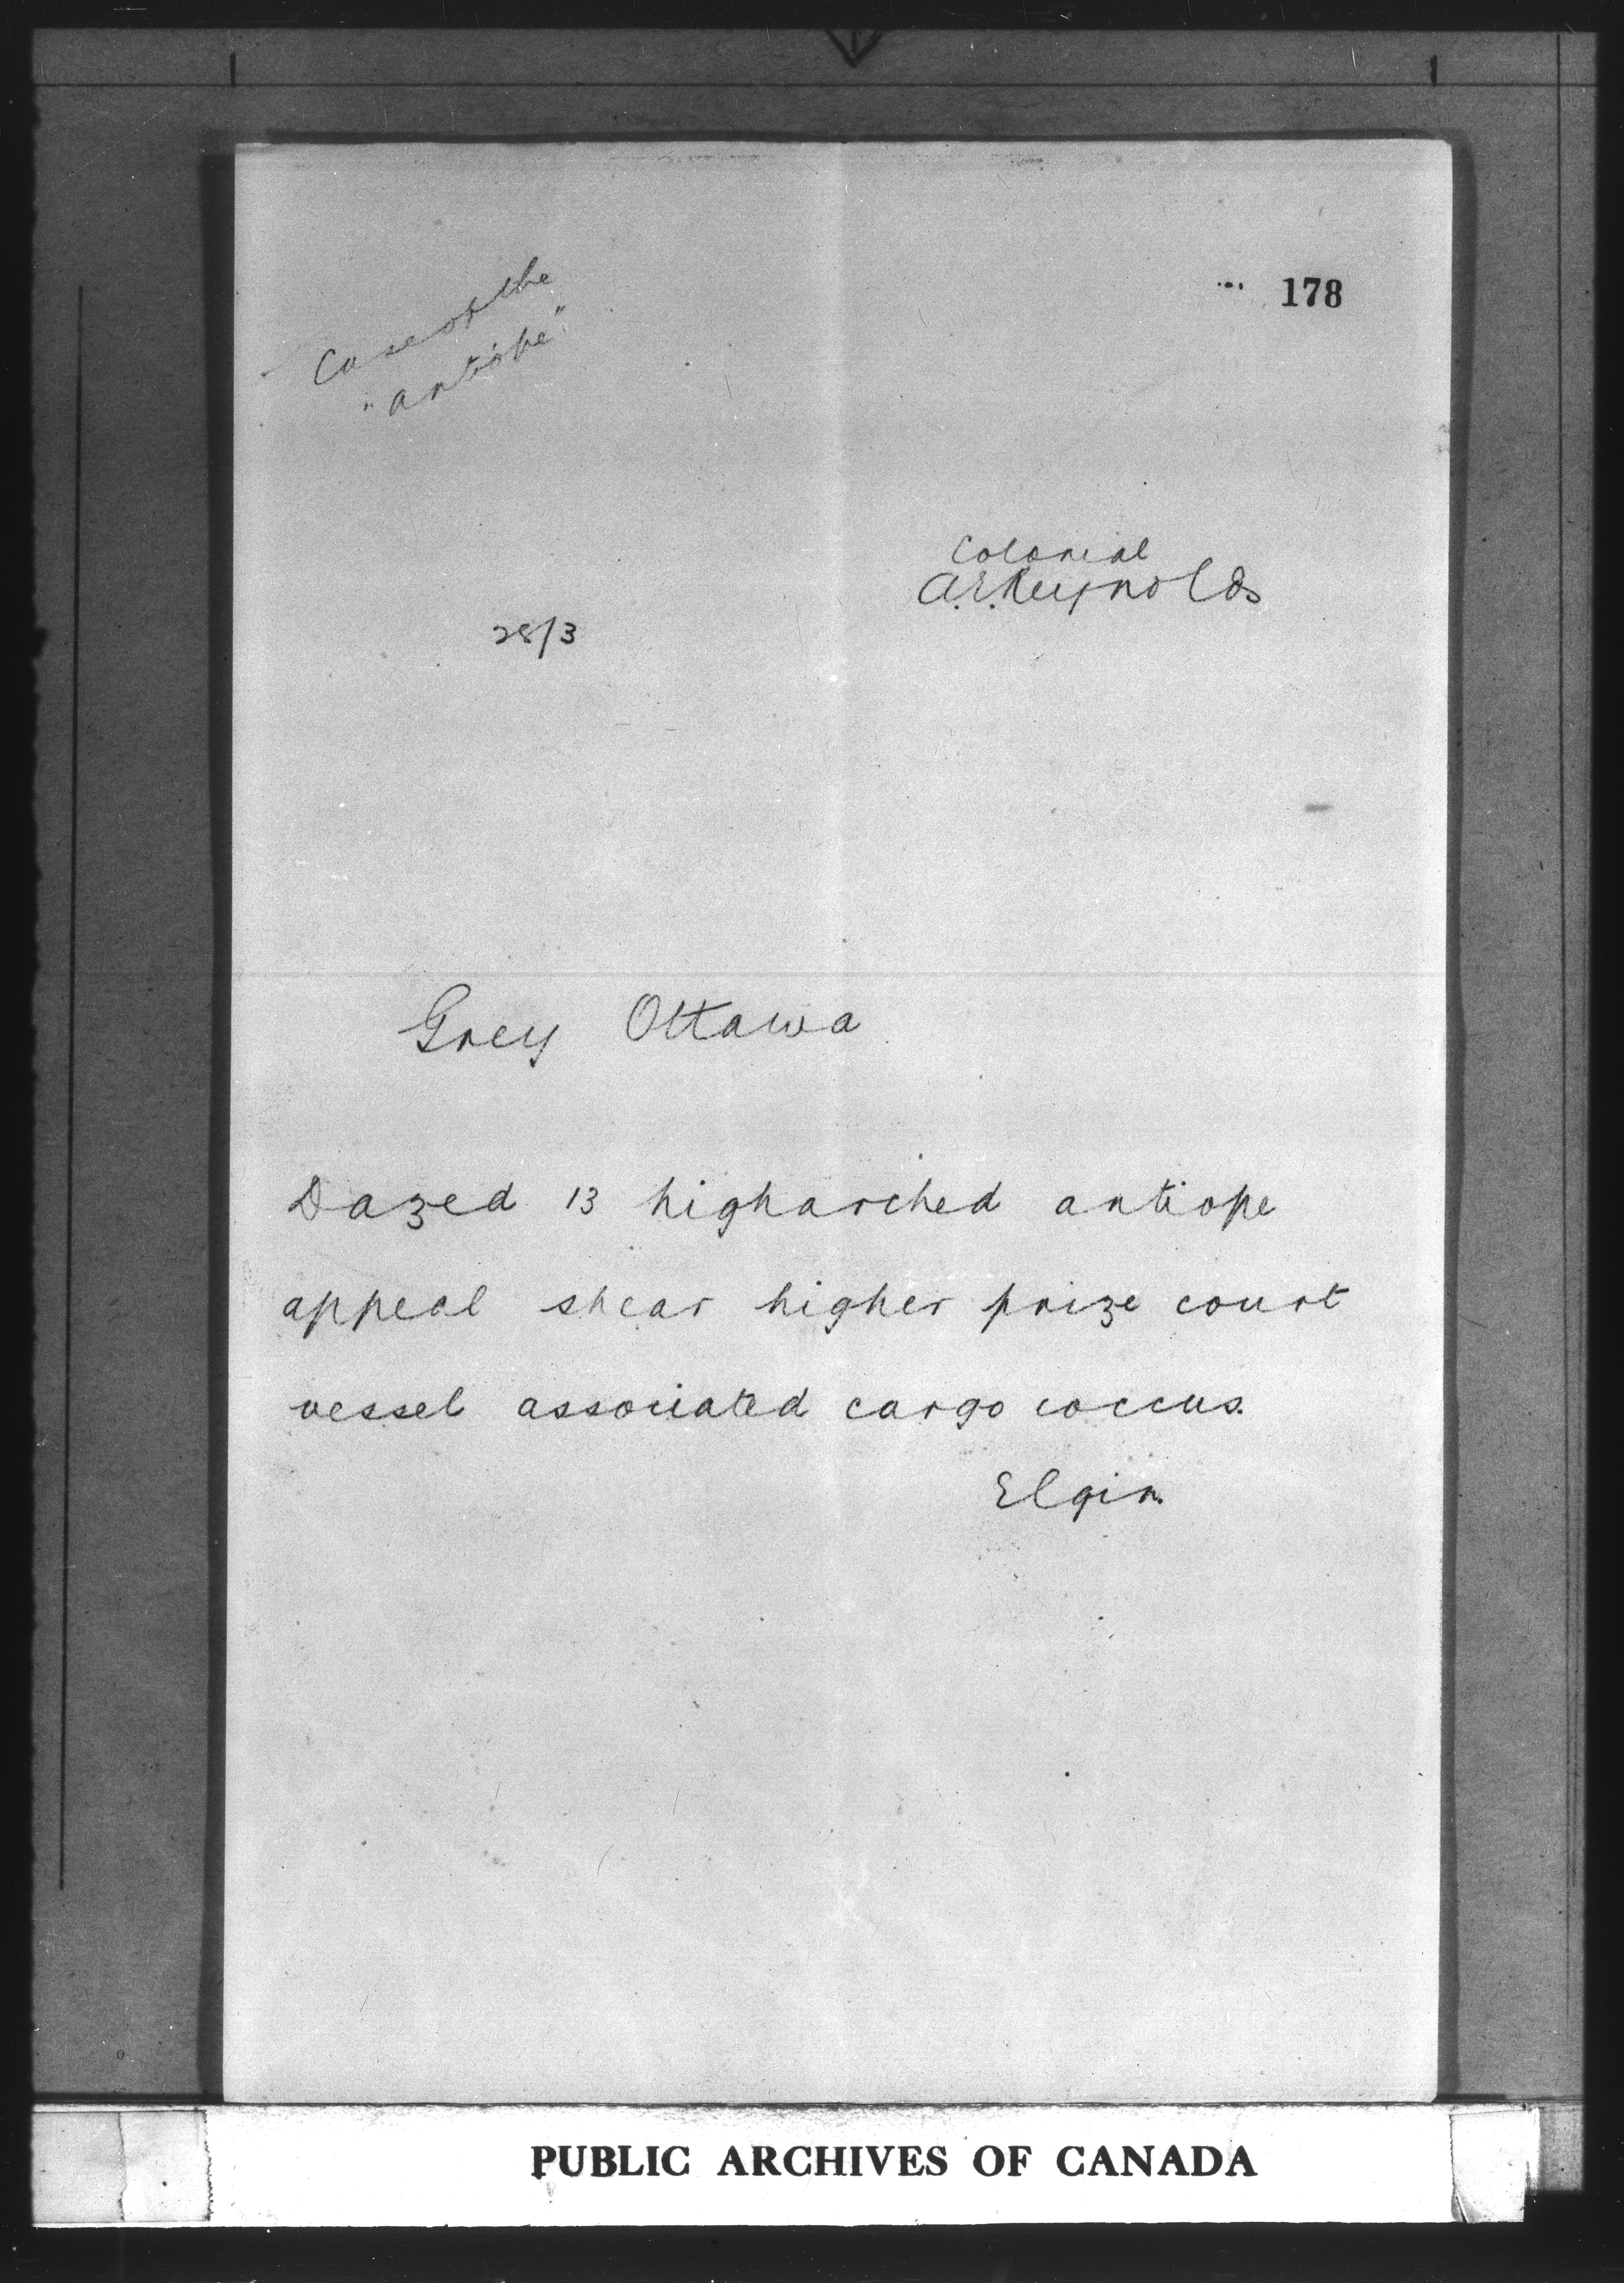 Case of the
"antiope"
178
Colonial
A.E. Reynolds
28/3
Grey Ottawa
Dazed 13 higharched antiope
appeal shear higher prize court
vessel associated cargo coccus.
Elgin.
PUBLIC ARCHIVES OF CANADA